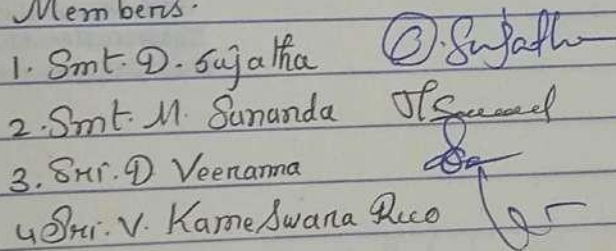 Members.
1. Smt. D. Sujatha D. Sujatha
2. Smt. M. Sunanda
3. Sri. D Veeranna
4. Sri. V. Kameswara Rao